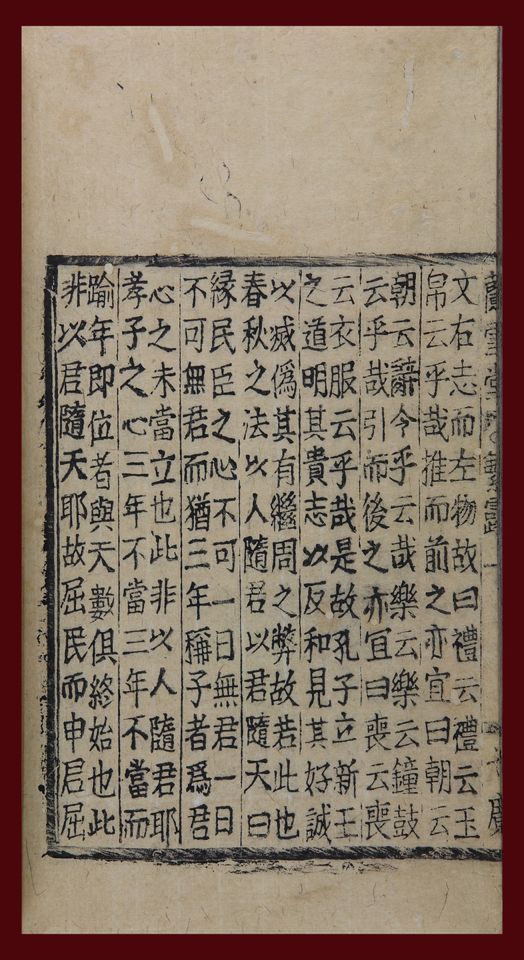 文右志而左物故曰禮云禮云玉
帛云乎哉推而前之亦宜曰朝云
朝云辭令乎云哉樂云樂云鐘鼓
云乎哉引而後之亦宜曰喪云喪
云衣服云乎哉是故孔子立新王
之道明其貴志以反和見其好誠
以滅僞其有繼周之弊故若此也
春秋之法以人隨君以君隨天曰
縁民臣之心不可一日無君一日
不可無君而猶三年稱子者爲君
心之未當立也此非以人隨君耶
孝子之心三年不當三年不當而
踰年即位者與天數俱終始也此
非以君隨天耶故屈民而申君屈